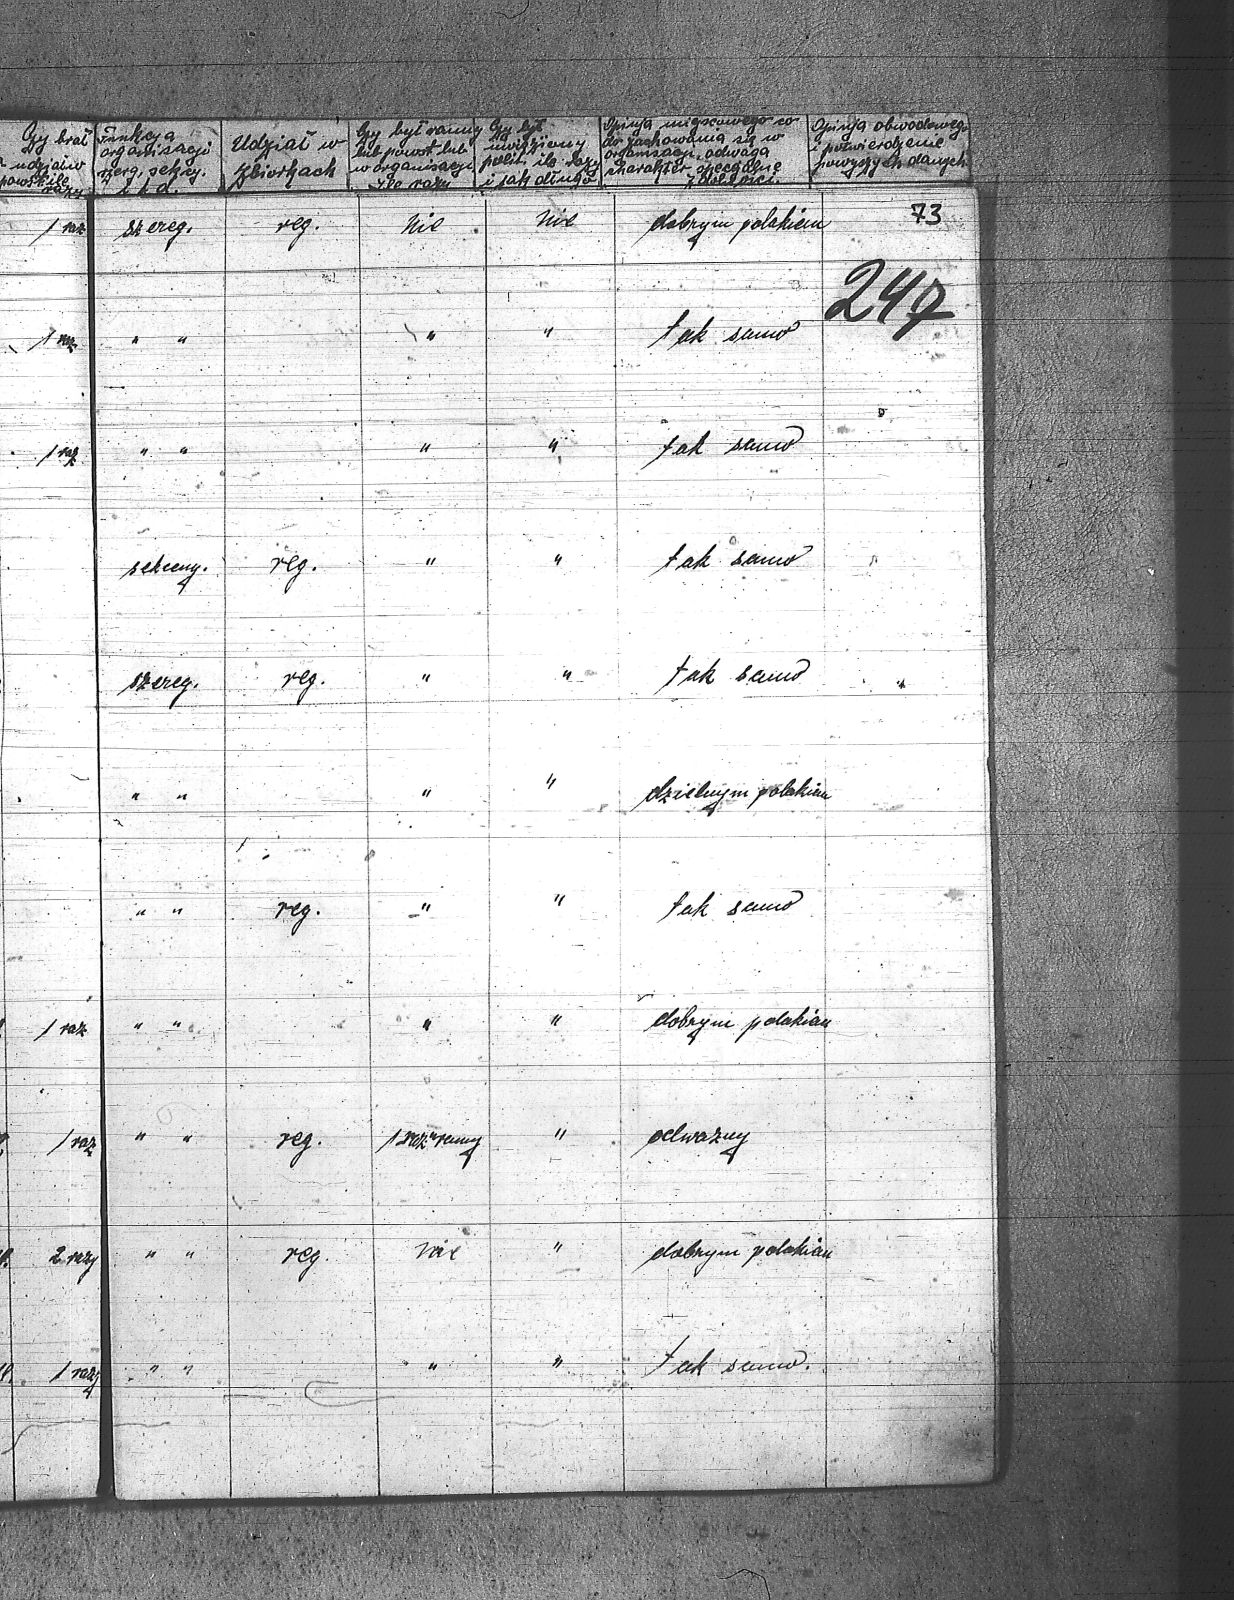 Czy brał
udział w
powst. ile
razy
Funkcja
organisacji
szereg. sekcy.
i t. d.
Udział w
zbiorkach
Czy był ranny
lub powst. lub
w organisacji
ile razy
Czy był
uwięziony
polit. ile razy
i jak długo
Opinja miejscowego co
do zachowania się w
organisacji, odwaga
charakter specjalne
zdolności.
Opinja obwodowego
i potwierdzenie
powyższych danych
1 raz szereg. reg. nie nie dobrym polakiem 73
247
1 raz " " " " tak samo
1 raz " " " " tak samo
sekcyny. reg. " " tak samo
szereg. reg. " " tak samo
" " " " dzielnym polakiem
" " reg. " " tak samo
1 raz " " " " dobrym polakiem
1 raz " " reg. 1 raz ranny " odważny
2 razy " " reg. nie " dobrym polakiem
1 razy " " " " tak samo.